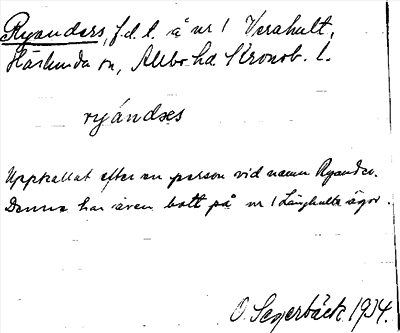 Ryanders, f.d.l. å nr 1 Verahult,
Härlunda sn, Allbo hd. Kronob. l.
ryándəs
Uppkallat efter en person vid namn Ryander.
Denne har även bott på nr 1 Långhults ägor.
O. Segerbäck 1934.